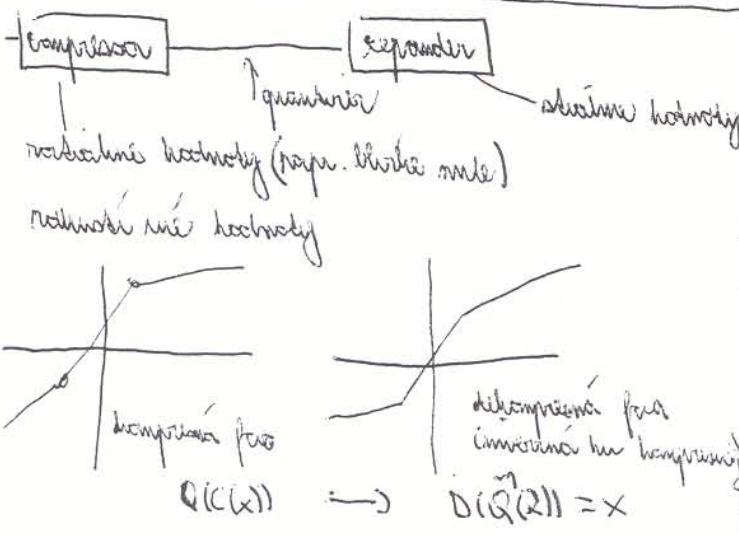 compressor expander
quantizér
stiahne hodnoty
roztiahne hodnoty (napr. blízke nule)
hodnoty
kompresná fcia
dekompresná fcia
(inverzná ku kompresnej)
Q(C(x)) → D(Q̃(2)) = x